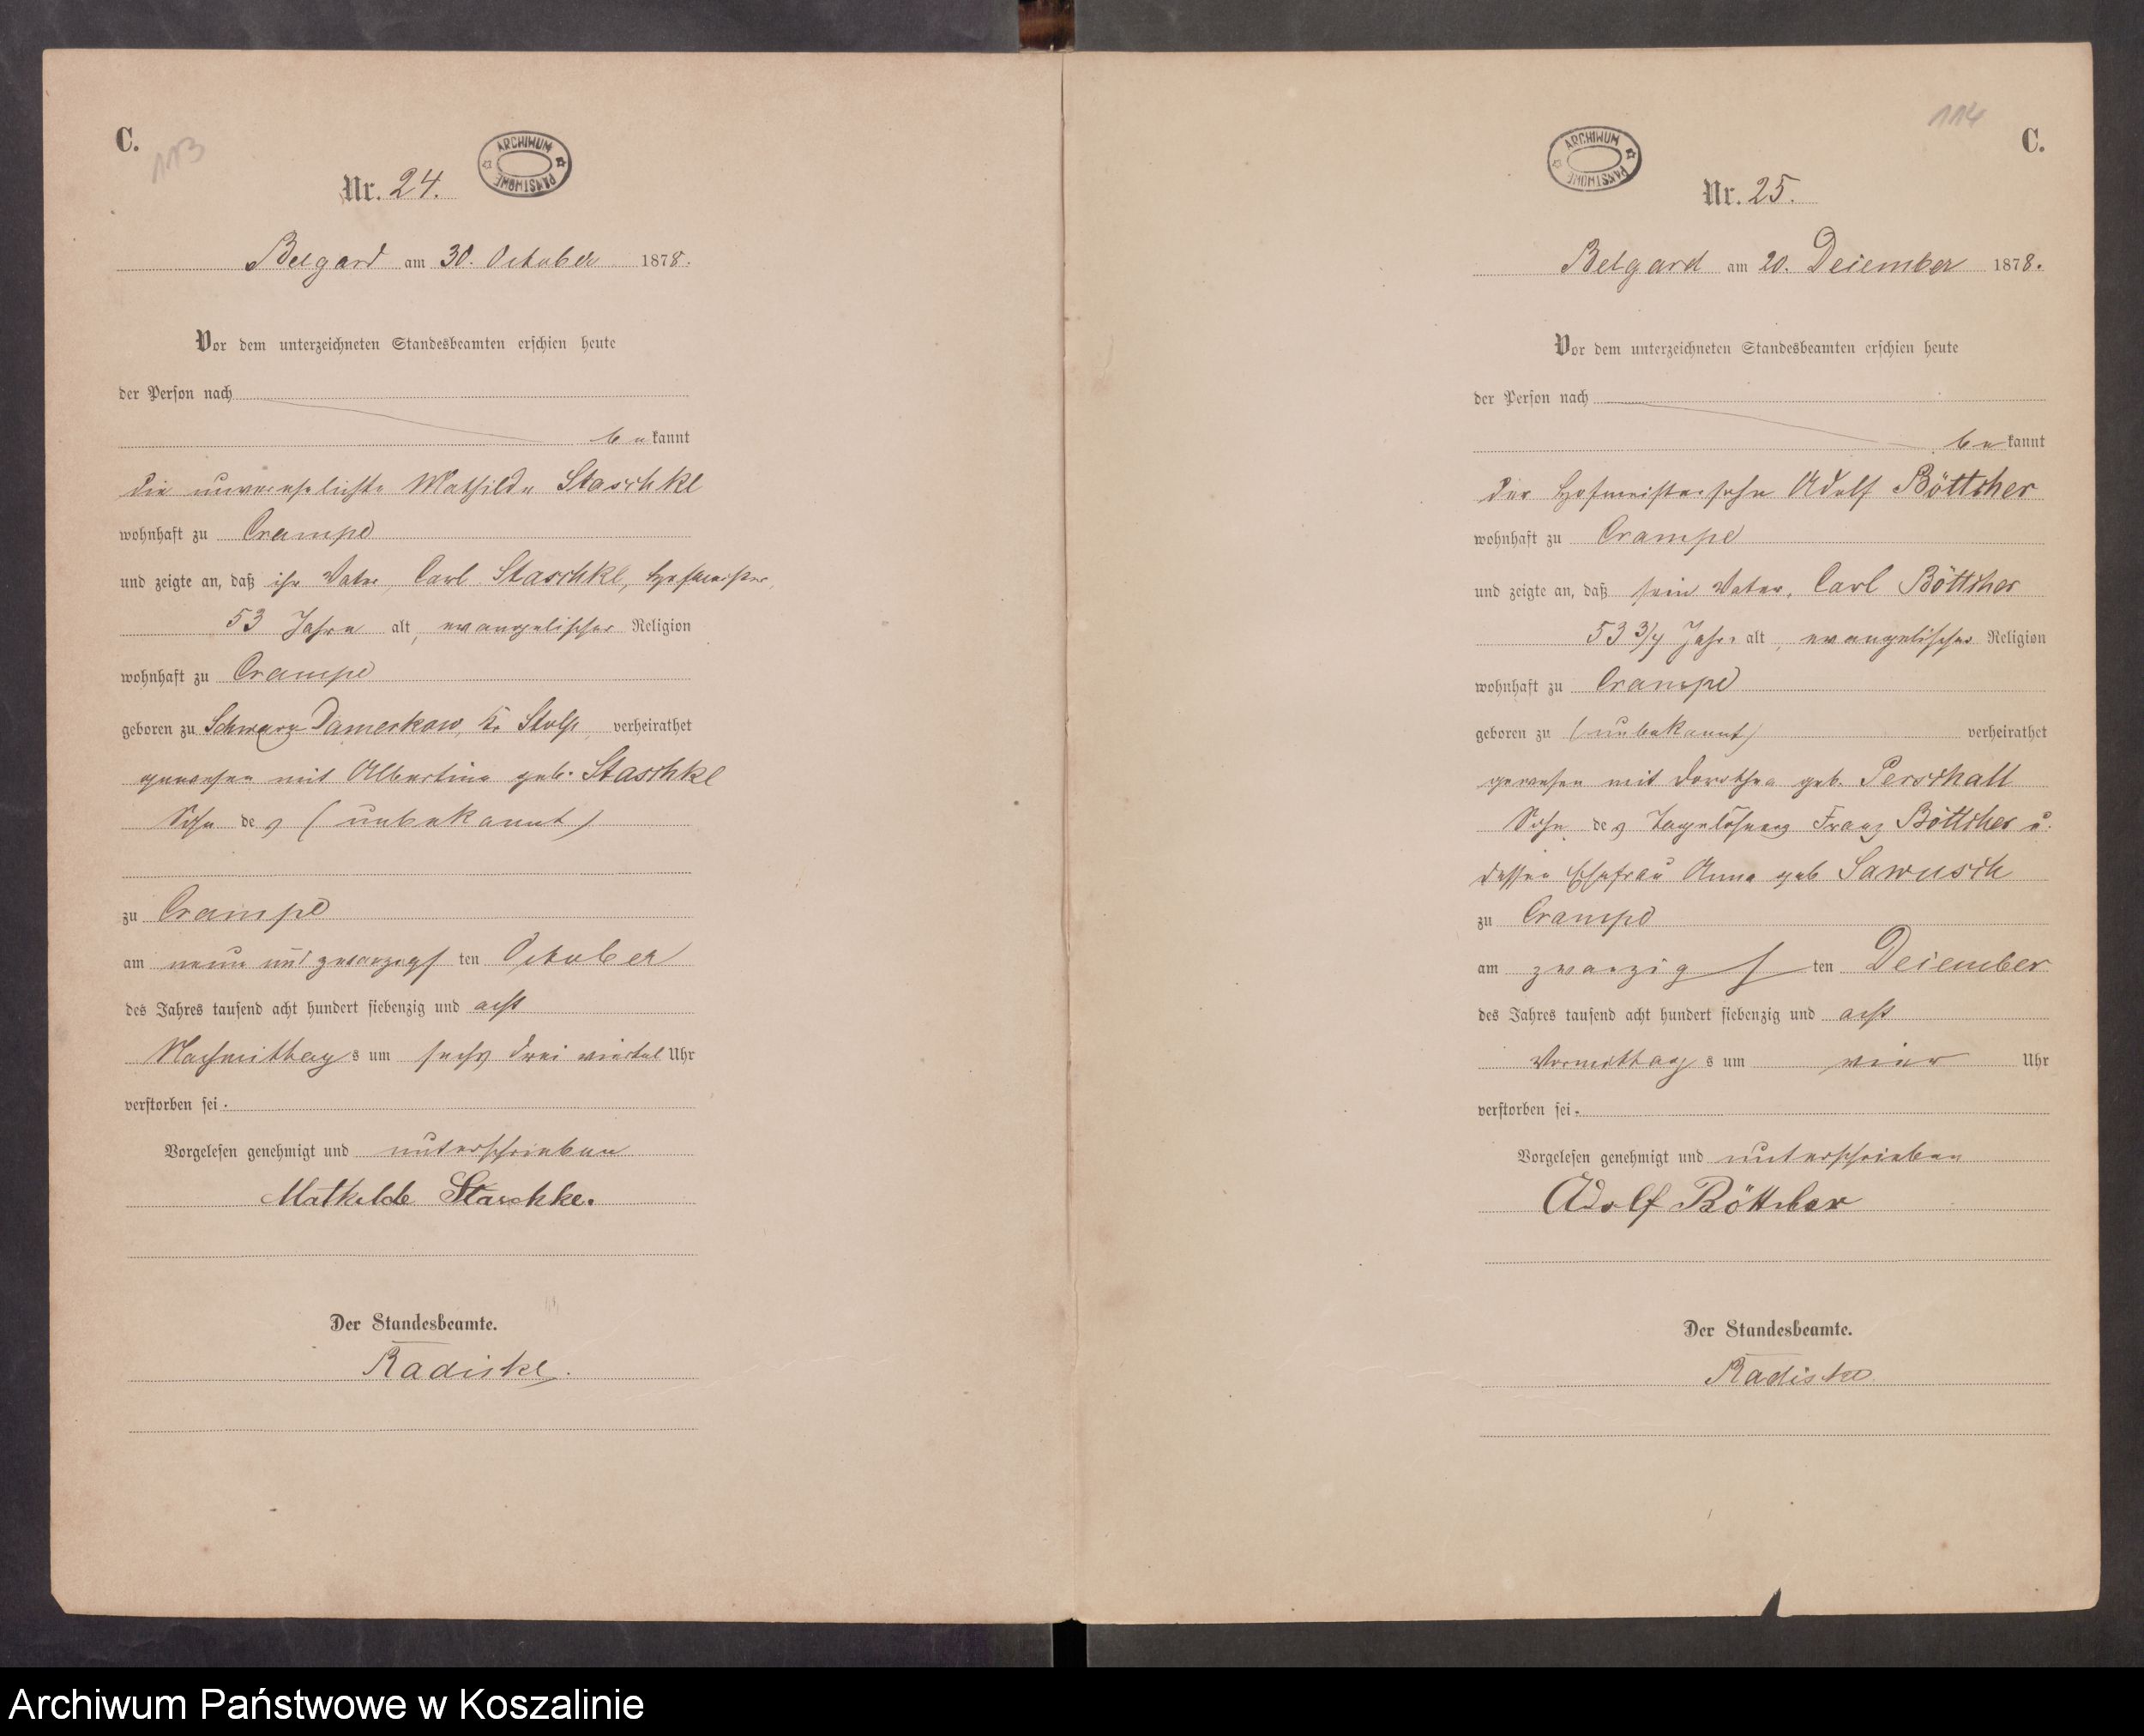 C.
113
ARCHIWUM PAŃSTWOWE
Nr. 24.
Belgard am 30. October 1878.
Vor dem unterzeichneten Standesbeamten erschien heute
der Person nach
be kannt
die unverehelichte Mathilde Staschke
wohnhaft zu Crampe
und zeigte an, daß ihr Vater, Carl Staschke, Hofmeister,
53 Jahre alt, evangelischer Religion
wohnhaft zu Crampe
geboren zu Schwarz Damerkow, Kr Stolp, verheirathet
gewesen mit Albertine geb. Staschke
Sohn des (unbekannt)
zu Crampe
am neun und zwanzigsten October
des Jahres tausend acht hundert siebenzig und acht
Nachmittags um sechs drei viertel Uhr
verstorben sei.
Vorgelesen genehmigt und unterschrieben
Mathilde Staschke.
Der Standesbeamte.
Radiske.
114
C.
ARCHIWUM PAŃSTWOWE
Nr. 25.
Belgard am 20. Dezember 1878.
Vor dem unterzeichneten Standesbeamten erschien heute
der Person nach
be kannt
der Hofmeistersohn Adolf Böttcher
wohnhaft zu Crampe
und zeigte an, daß sein Vater, Carl Böttcher
53 3/4 Jahr alt, evangelischer Religion
wohnhaft zu Crampe
geboren zu (unbekannt) verheirathet
gewesen mit Dorothea geb. Perschall
Sohn des Tagelöhners Franz Böttcher u.
dessen Ehefrau Anna geb Sawusch
zu Crampe
am zwanzigsten Dezember
des Jahres tausend acht hundert siebenzig und acht
Vormittags um vier Uhr
verstorben sei.
Vorgelesen genehmigt und unterschrieben
Adolf Böttcher
Der Standesbeamte.
Radiske
Archiwum Państwowe w Koszalinie